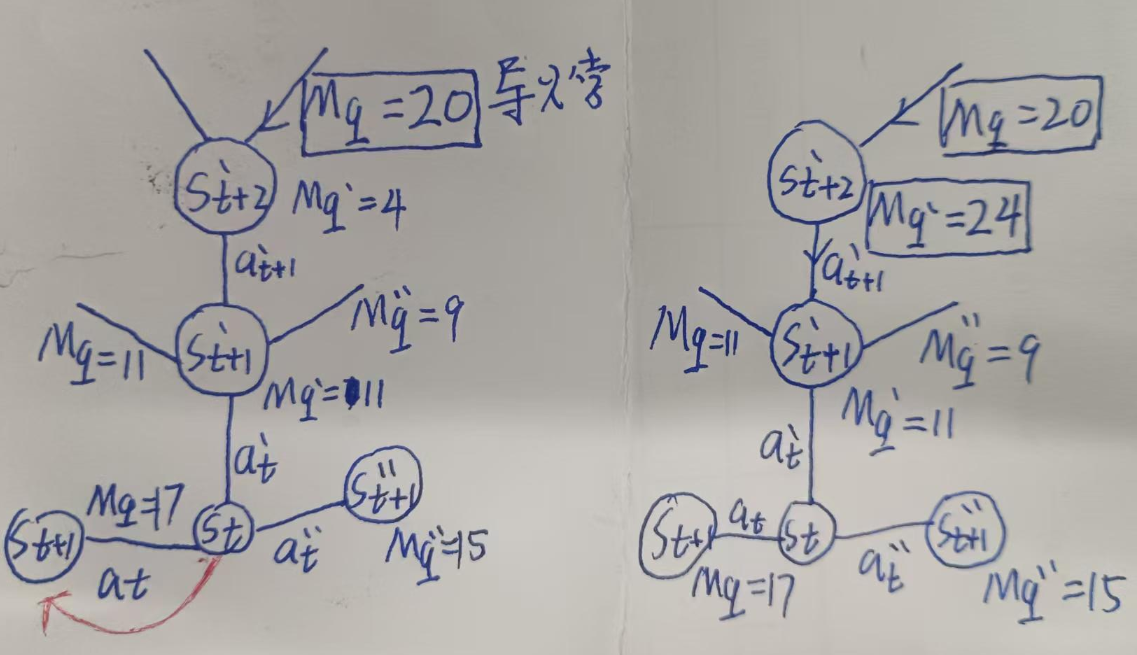 Mq=20
St+2`
Mq`=4
at+1`
Mq=11
St+1`
Mq``=9
Mq`=11
at`
Mq=17
St+1
St
at
at``
St+1``
Mq``=15
Mq=20
St+2`
Mq`=24
at+1`
Mq=11
St+1`
Mq``=9
Mq`=11
at`
St+1
at
St
Mq=17
at``
St+1``
Mq``=15